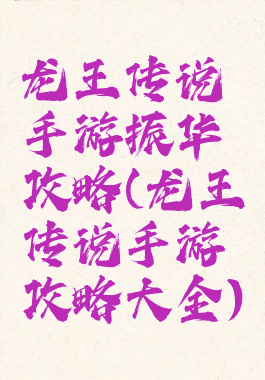 龙王传说
手游振华
攻略(龙王
传说手游
攻略大全)